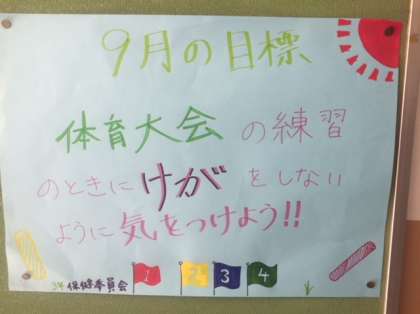 9月の目標
体育大会の練習
のときにけがをしない
ように気をつけよう!!
3年 保健委員会 1 2 3 4